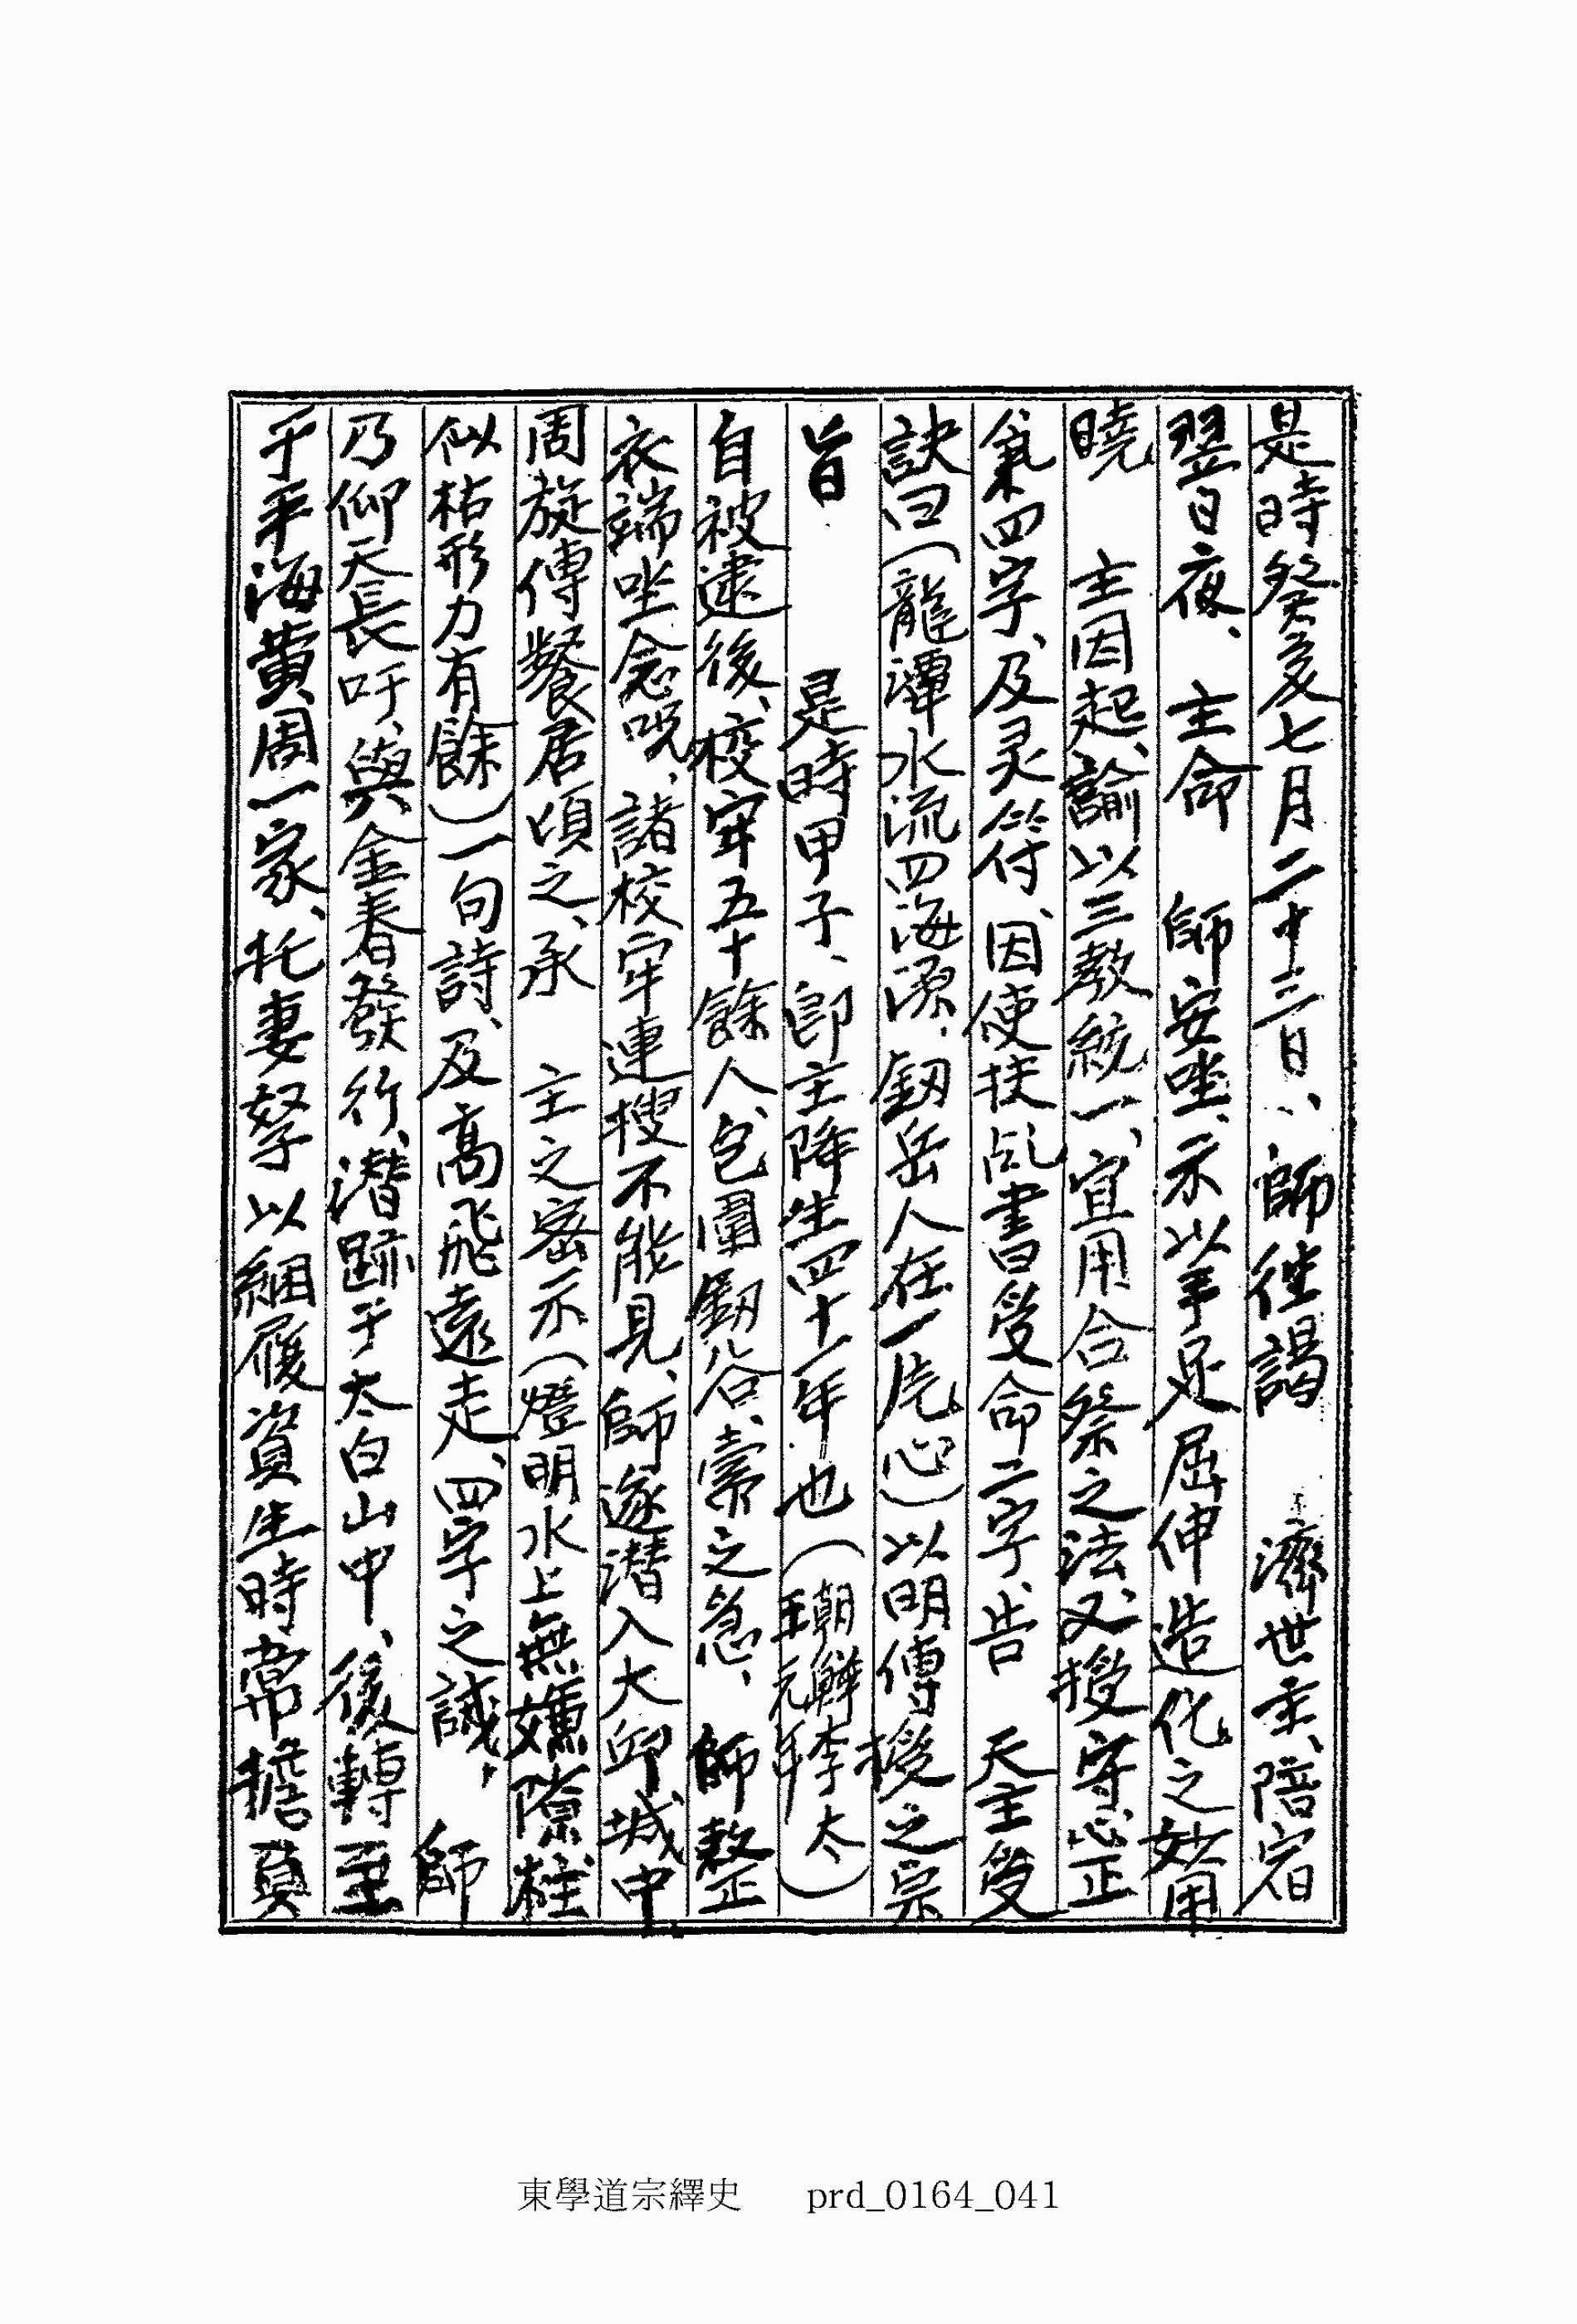 是時癸亥七月二十三日、師徃謁 濟世主、陪宿
翌日夜、主命 師安坐、示以手足屈伸造化之妙用
曉 主因起、諭以三教統一、宜用合祭之法、又授守心正
氣四字、及灵符、因使扶乩書受命二字、告 天主受
訣曰(龍潭水流四海源、釼岳人在一片心)以明傳授之宗
旨 是時甲子、卽主降生四十一年也(朝鮮李太王元年)
自被逮後、校牢五十餘人、包圍釼谷、索之急、師整
衣端坐念呪、諸校牢連搜不能見、師遂潛入大邱城中
周旋傳餐居頃之、承 主之密示(燈明水上無嫌隙柱
似枯形力有餘)一句詩、及高飛遠走、四字之誡、師
乃仰天長吁、與金春發行、潛跡于太白山中、後轉至
于平海黃周一家、托妻孥以綑屨資生時常擔負
東學道宗繹史 prd_0164_041